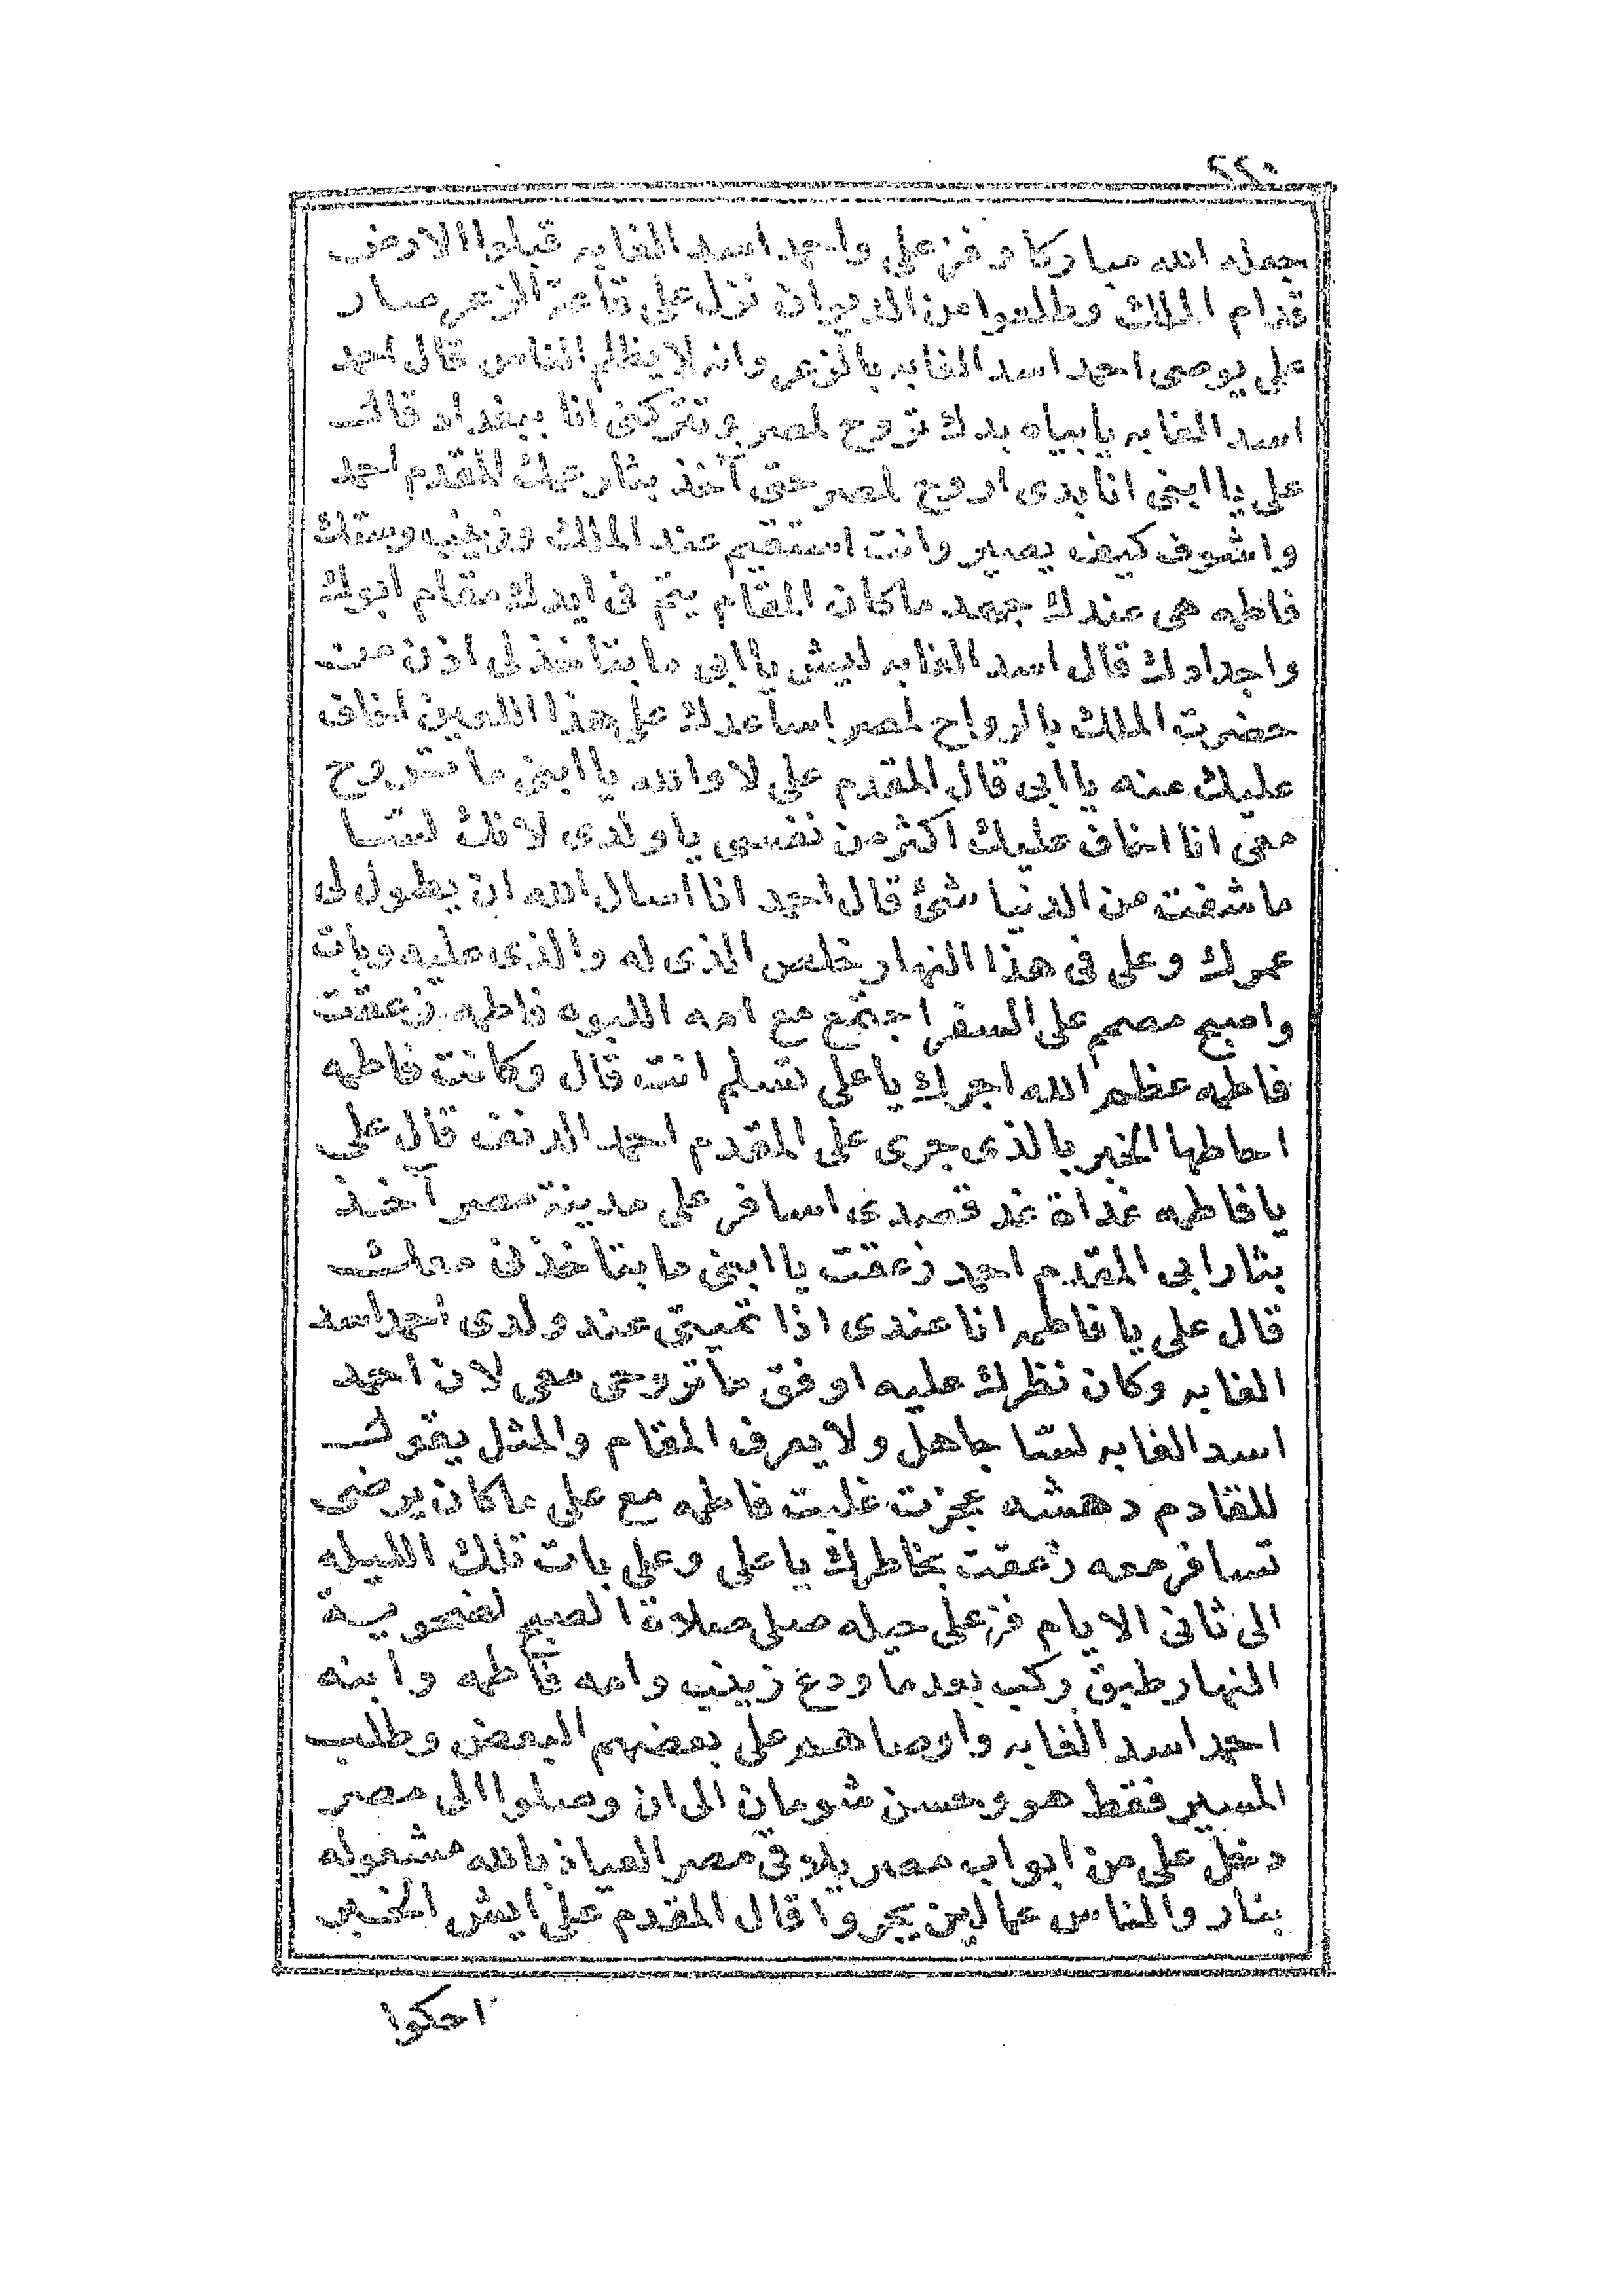 ٢٢٠
جعله الله مباركا وفز علي واحمد اسد الغابه قبلوا الارض
قدام الملك وطلعوا من الديوان نزل على قاعة الزعر صار
علي يوصى احمد اسد الغابه بالزعر وانه لا يظلم الناس قال احمد
اسد الغابه يابياه بدك تروح لمصر وتتركنى انا ببغداد قال
على يا ابنى انا بدى اروح لمصر حتى آخذ بثار عمك المقدم احمد
واشوف كيف يصير وانت استقيم عند الملك وزينب وستك
فاطمه هى عندك جهد ما كان المقام يتم فى ايدك مقام ابوك
واجدادك قال اسد الغابه ليش يا ابى ما بتاخذ لى اذن من
حضرت الملك بالرواح لمصر اساعدك على هذا اللعين لخاف
عليك منه يا ابى قال المقدم على لا والله يا ابنى ما بتروح
معى انا اخاف عليك اكثر من نفسى يا ولدى لانك لستا
ما شفت من الدنيا شئ قال احمد انا اسال الله ان يطول لى
عمرك وعلى فى هذا النهار خلص الذى له والذى عليه وبات
واصبح مصمم على السفر اجتمع مع امه اللبوه فاطمه زعقت
فاطمه عظم الله اجرك يا على تسلم انت قال وكانت فاطمه
احاطها الخبر بالذى جرى على المقدم احمد الدنف قال على
يا فاطمه غداة غد قصدى اسافر على مدينة مصر آخذ
بثار ابى المقدم احمد زعقت يا ابنى ما بتاخذنى معك
قال على يا فاطمه انا عندى اذا تميتى عند ولدى احمد اسد
الغابه وكان نظرك عليه اوفق ما تروحى معى لان احمد
اسد الغابه لستا جاهل ولا يعرف المقام والمثل يقول
للقادم دهشه عجزت غلبت فاطمه مع على ما كان يرضى
تسافر معه زعقت بخاطرك يا على وعلى بات تلك الليله
الى ثانى الايام فز على حيله صلى صلاة الصبح لضحوية
النهار طبق ركب بعد ما ودع زينب وامه فاطمه وابنه
احمد اسد الغابه واوصاهم على بعضهم البعض وطلب
المسير فقط هو وحسن شومان الى ان وصلوا الى مصر
دخل على من ابواب مصر يلاقى مصر العياذ بالله مشعوله
بنار والناس عمالين يجروا قال المقدم على ايش الخبر
احكوا